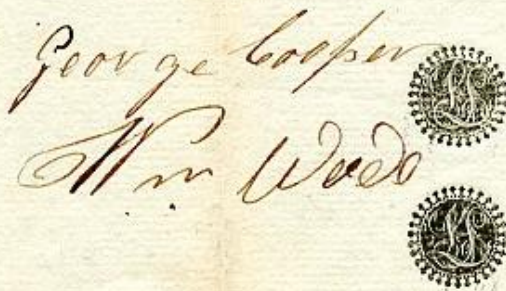 George Cooper
LS
Wm Wood
LS